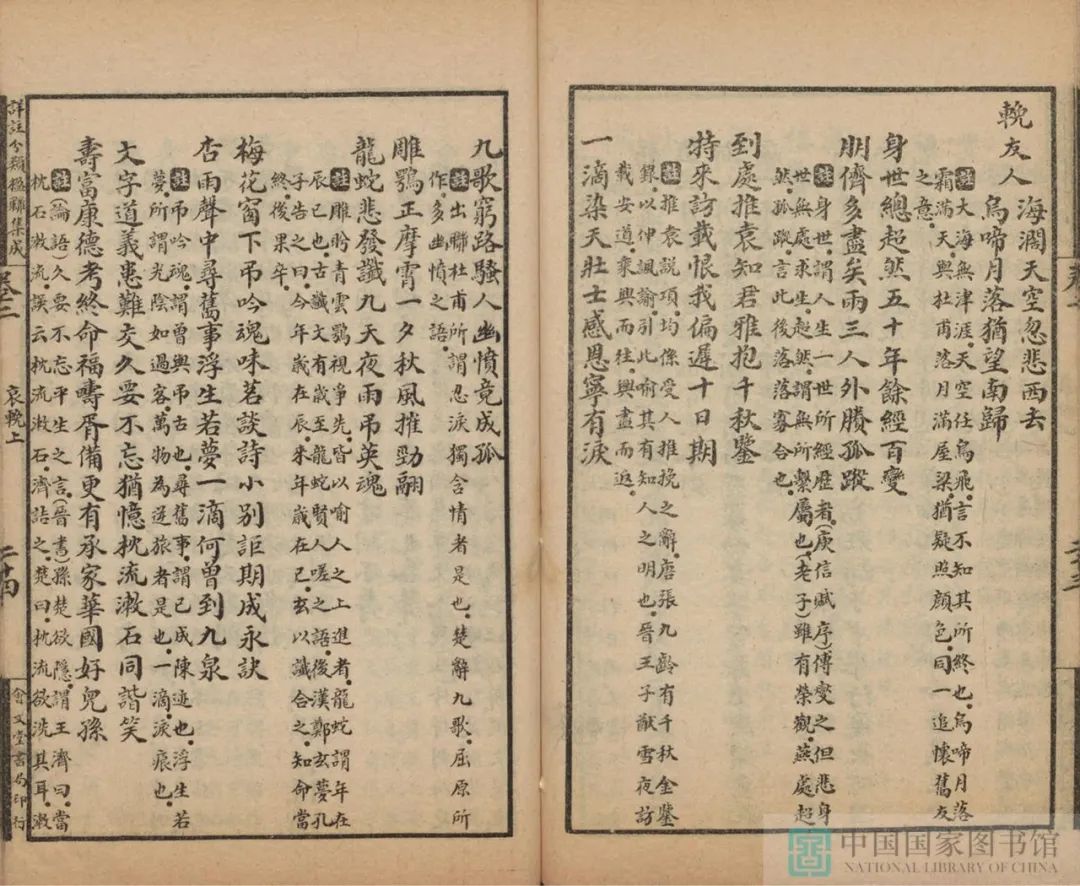 輓友人
海濶天空忽悲西去
烏啼月落猶望南歸
註大海無津涯天空任鳥飛言不知其所終也烏啼月落
霜滿天與杜甫落月滿屋梁猶疑照顏色同一追懷舊友
之意
身世總超然五十年餘經百變
朋儕多盡矣兩三人外賸孤蹤
註身世謂人生一世所經歷者(庾信賦序)傅燮之但悲身
世無處求生超然謂無所繫屬也(老子)雖有榮觀燕處超
然孤蹤言此後落落寡合也
到處推袁知君雅抱千秋鑒
特來訪戴恨我偏遲十日期
註推袁說項均係受人推挽之辭唐張九齡有千秋金鑒
錄以伸諷諭引此喻其有知人之明也晉王子猷雪夜訪
戴安道乘興而往興盡而返
一滴染天壯士感恩寧有淚
九歌窮路騷人幽憤竟成孤
註出聯杜甫所謂忍淚獨含情者是也楚辭九歌屈原所
作多幽憤之語
雕鶚正摩霄一夕秋風摧勁翮
龍蛇悲發讖九天夜雨弔英魂
註雕盼青雲鶚視爭先皆以喻人之上進者龍蛇謂年在
辰巳也古讖文有歲至龍蛇賢人嗟之語後漢鄭玄夢孔
子告之曰今年歲在辰來年歲在巳玄以讖合之知命當
終後果卒
梅花窗下弔吟魂味茗談詩小別詎期成永訣
杏雨聲中尋舊事浮生若夢一滴何曾到九泉
註弔吟魂謂曾與弔古也尋舊事謂已成陳迹也浮生若
夢所謂光陰如過客萬物為逆旅者是也一滴淚痕也
文字道義患難交久要不忘猶憶枕流漱石同諧笑
壽富康德考終命福疇胥備更有承家華國好兒孫
註(論語)久要不忘平生之言(晉書)孫楚欲隱謂王濟曰當
枕石漱流誤云枕流漱石濟詰之楚曰枕流欲洗其耳漱
詳註分類楹聯集成
卷三
哀輓上
二十四
會文堂書局印行
中国国家图书馆
NATIONAL LIBRARY OF CHINA